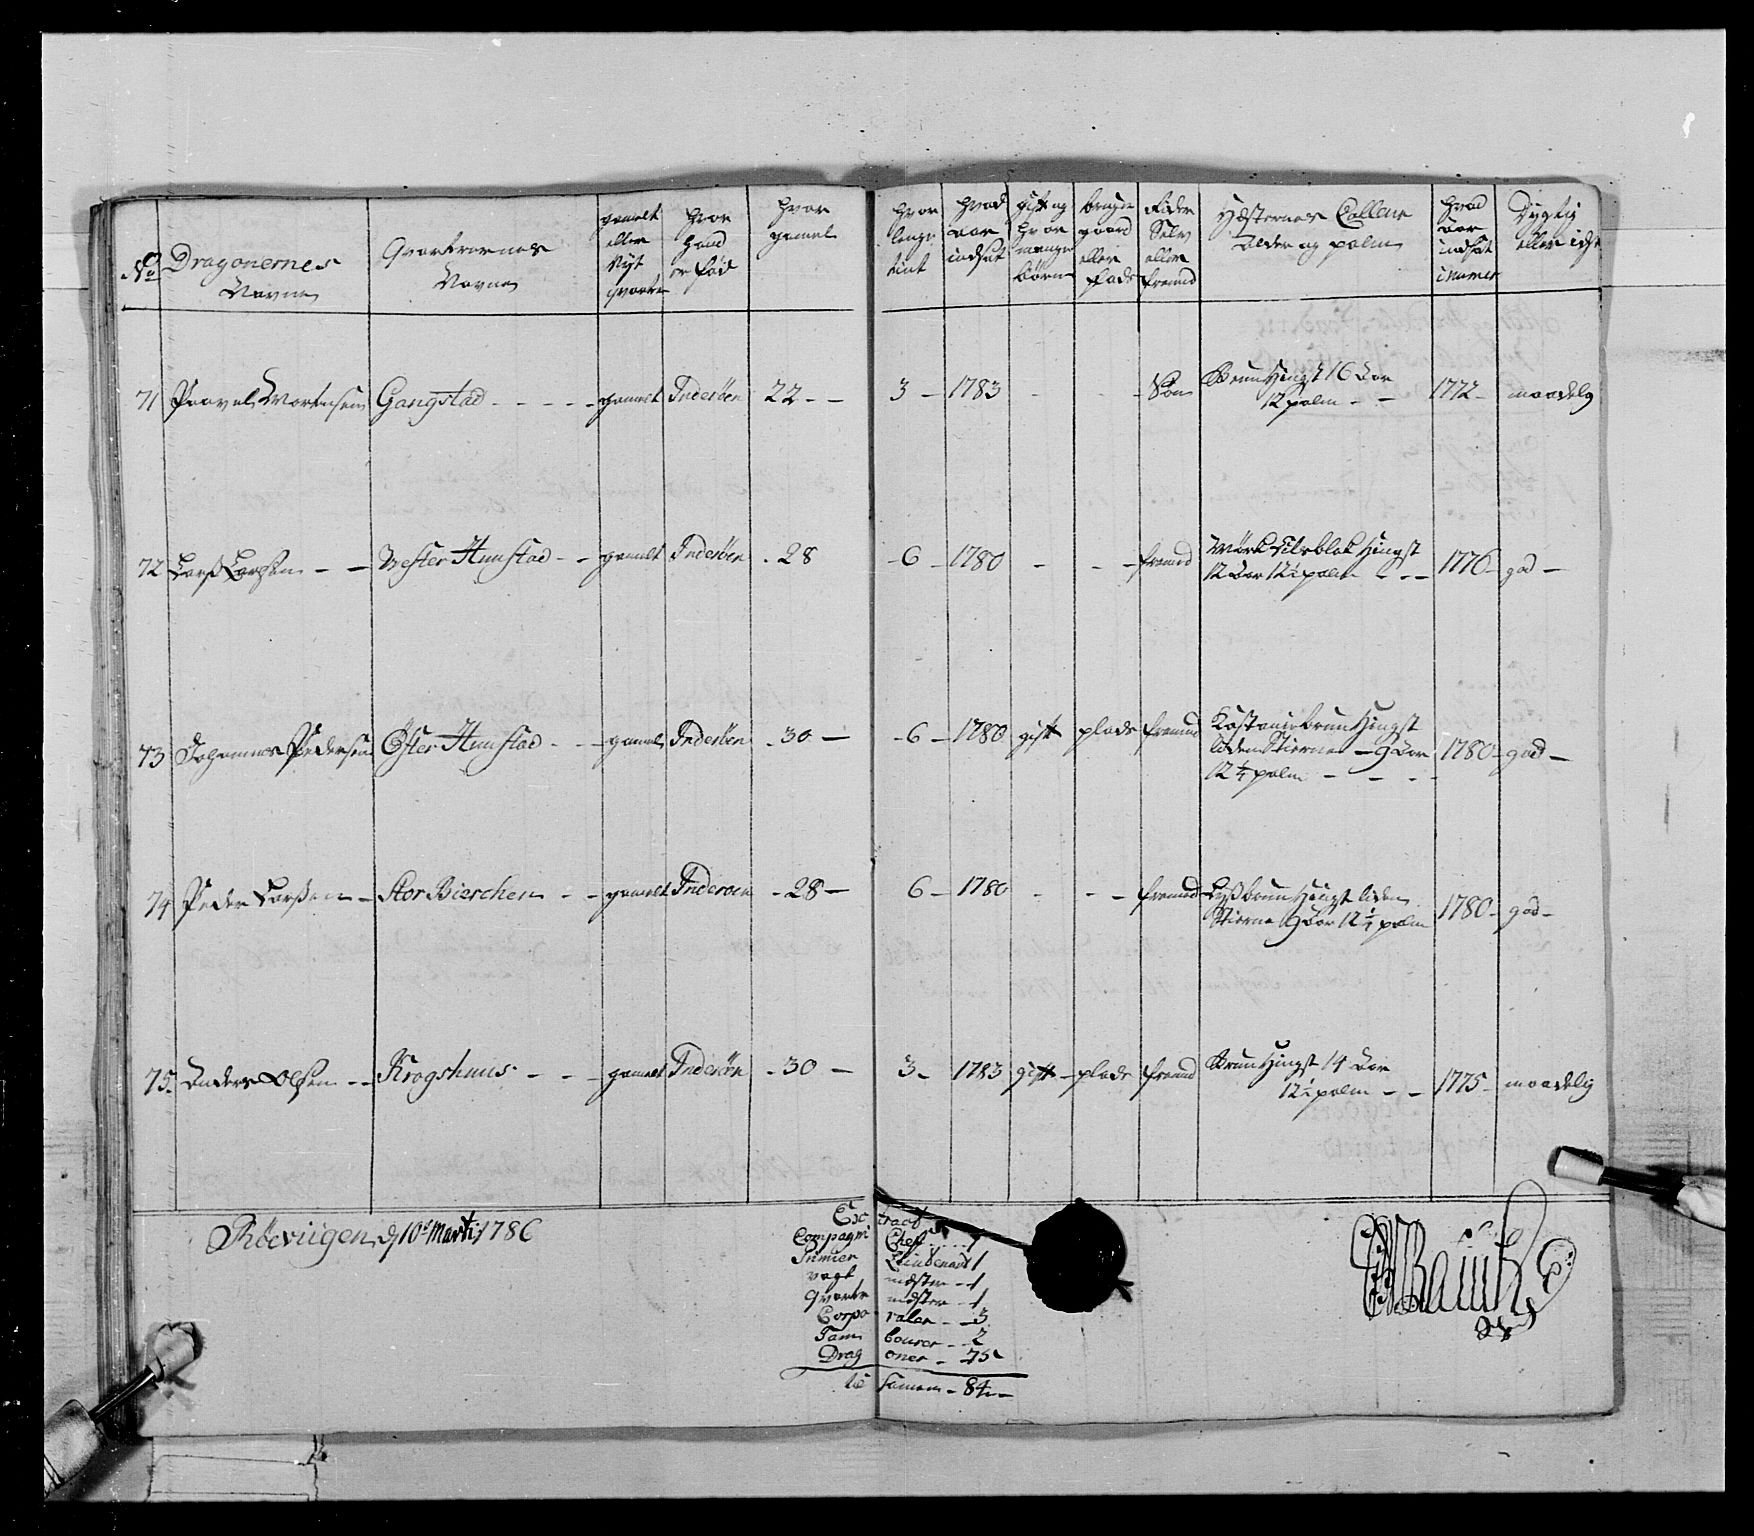 No
Dragonernes
Navne
Qvarterernes
Navne
gamelt
eller
Nyt
qvarter
hvor
hand
er fød
hvor
gamel
hvor
lenge
tient
hvad
aar
indsat
gift og
hvor
mange
børn
bruger
gaard
eller
plads
Rider
Selv
eller
fremed
Hæsternes Couleur
Alder og palm
hvad
aar
indsat
i numer
Dygtig
eller ickе
71 Paavel Mortensen Gangstad - - - - - gamelt Inderöen 22 - - 3 - 1783 - - - Søn Brun Hingst 16 Aar
12 palm - - 1772 - maadelig
72 Larß Larßen - - Vester Hunstad - - gamelt Inderöen - 28 - 6 - 1780 - - - fremed Mörk Hingst
12 Aar 12½ palm - - - 1776 - god -
73 Johannes Pedersen Öster Hunstad - - - gamel Inderöen - 30 - - 6 - 1780 gift plads fremed Kastaniebrun Hingst
liden Stierne - 9 Aar
12 ¼ palm - - - 1780 - god -
74 Peder Larßen - Stor Bierchen - - gamelt Inderoen - 28 - 6 - 1780 - - - fremed Lyßbrun Hingst liden
Stierne 9 Aar 12 ¼ palm 1780 - god -
75. Anders Olsen - - Krogshuus - - - gamelt Inderöen - 30 - 3 - 1783 gift - plads fremed Brun Hingst 14 Aar
12½ palm - - 1775 - maadelig
Röeviigen, d 10d Martj 1786
Extract
Compagni Chef 1
Premier Lieutenant 1
vagtmester - - 1
Qvartermester - - 1
Corporaler - - 3
Tambourer - - 2
Dragoner - 75
til Samen - 84 -